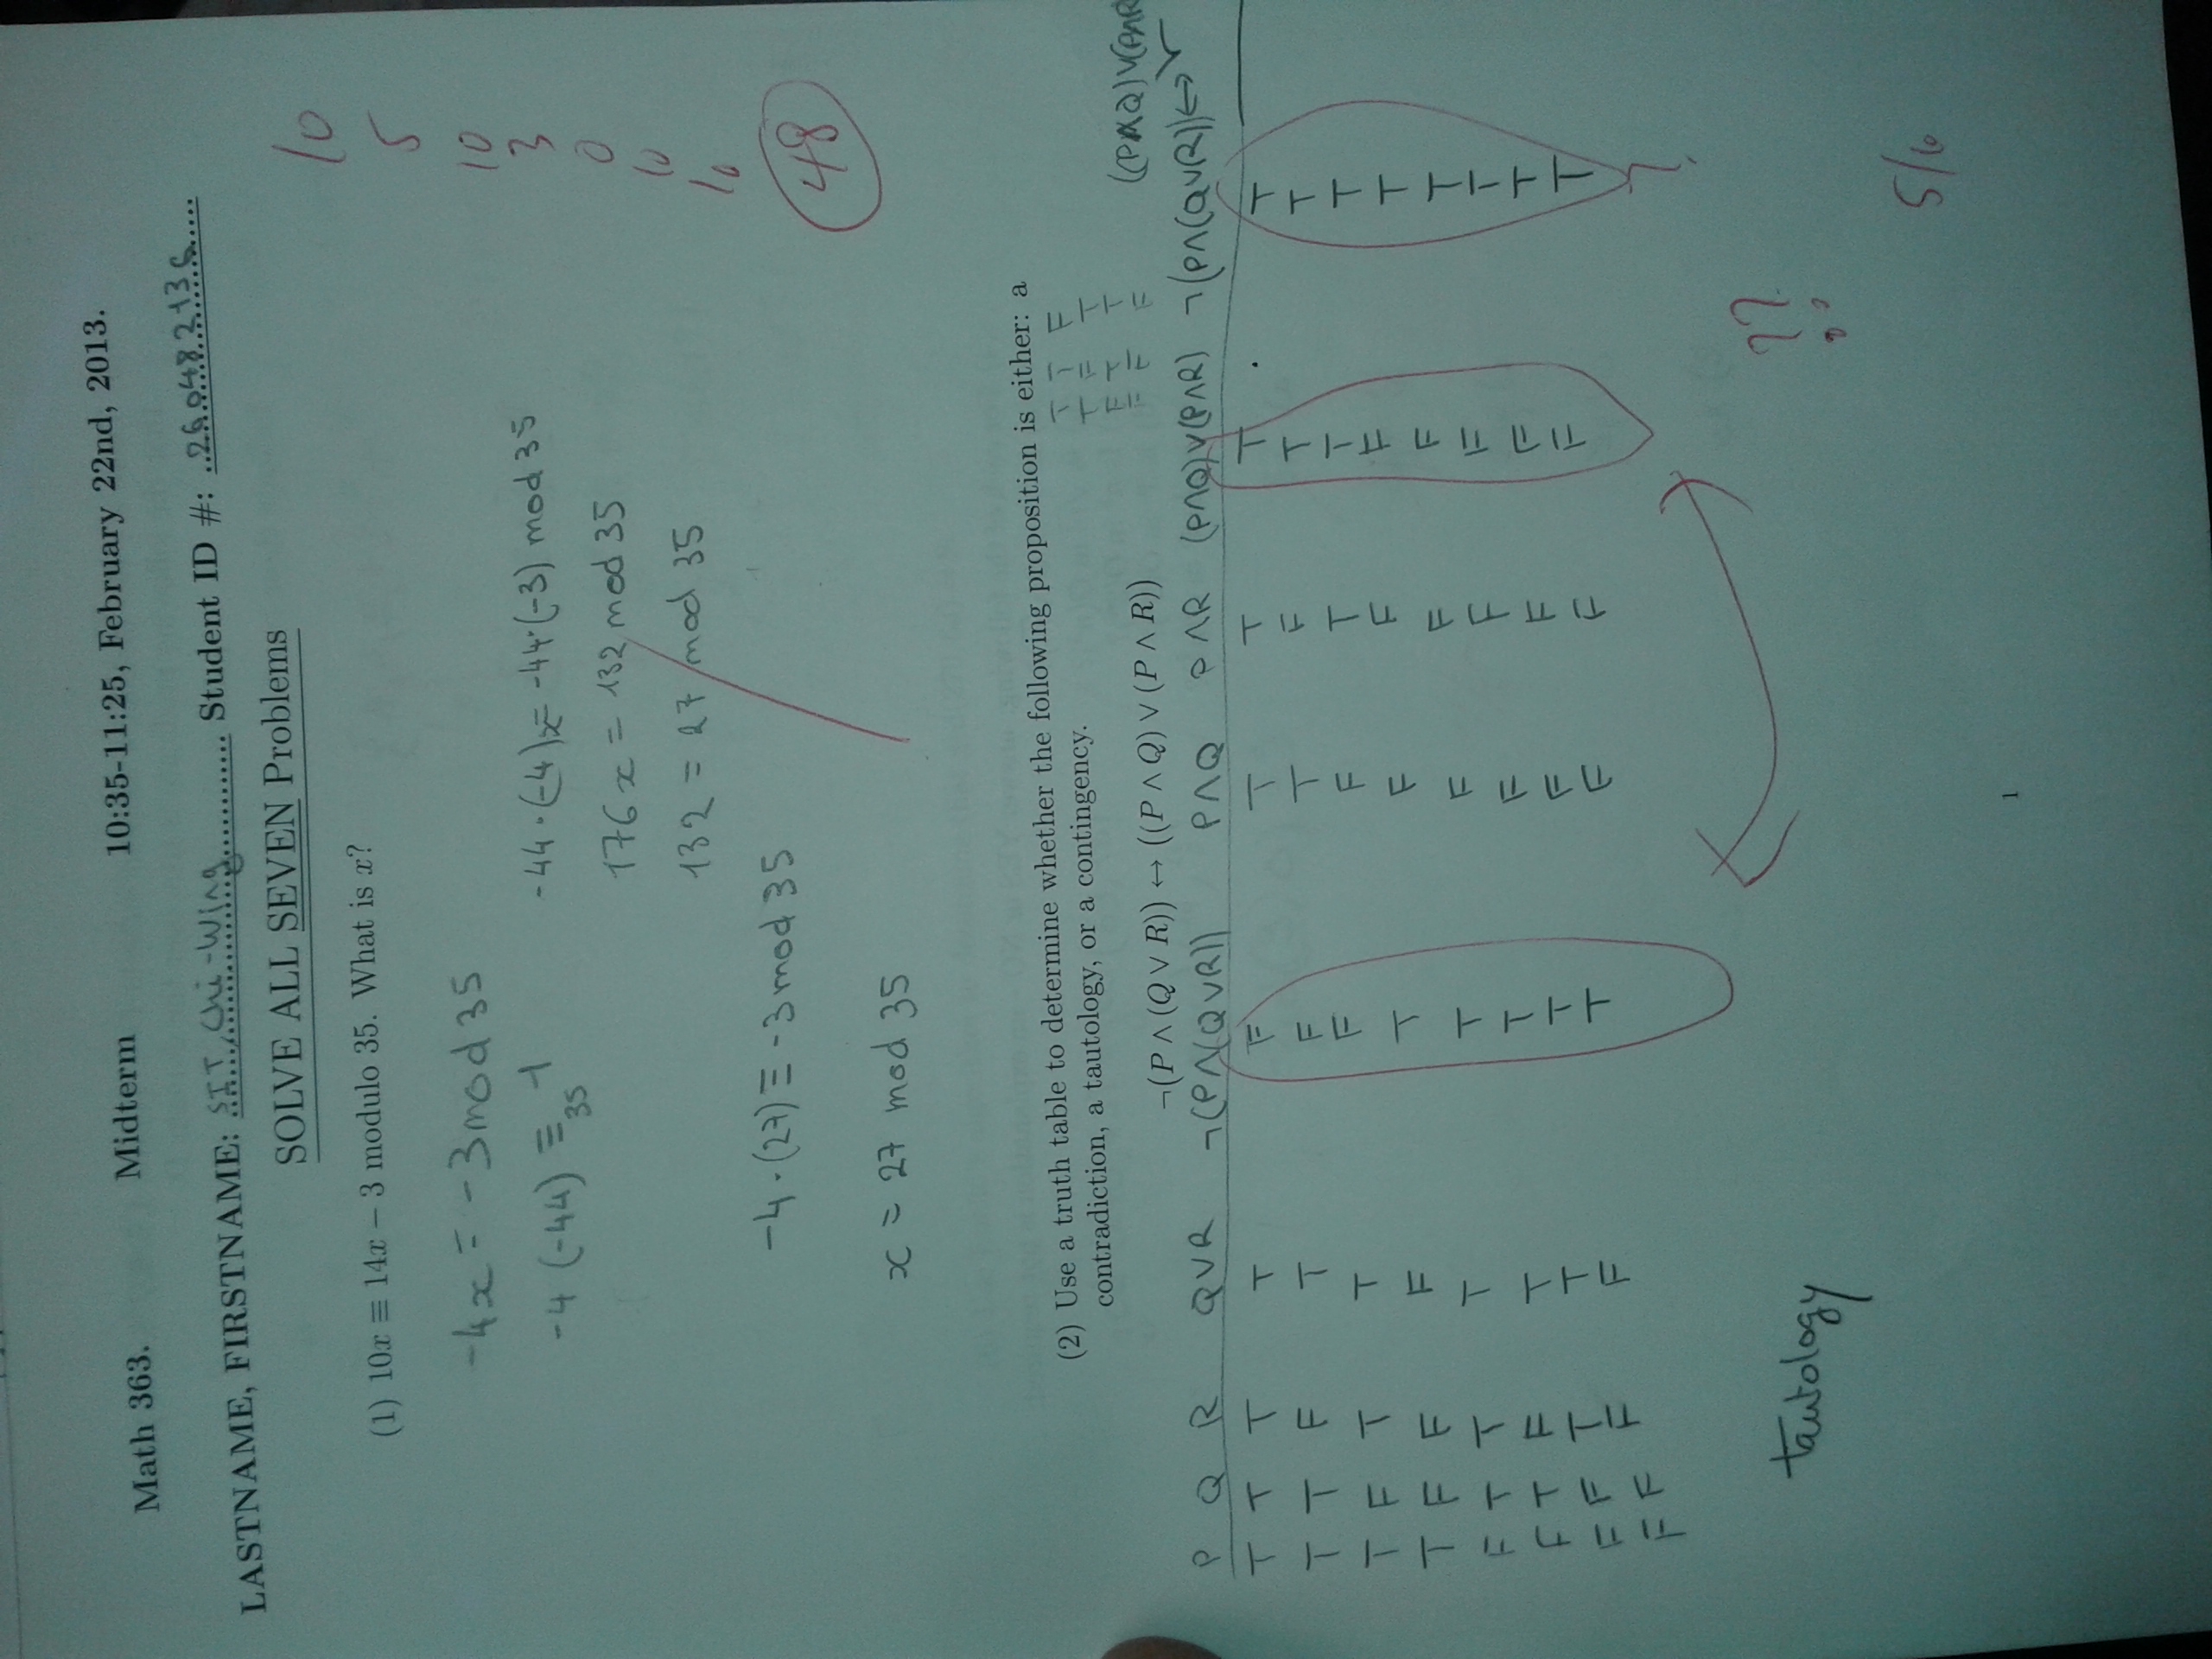 Math 363. Midterm 10:35-11:25, February 22nd, 2013.
LASTNAME, FIRSTNAME: SIT, Chi-Wing Student ID #: 260482136
SOLVE ALL SEVEN Problems
10
(1) 10x ≡ 14x − 3 modulo 35. What is x?
5
-4x = -3 mod 35
10
-4 (-44) ≡₃₅ 1
-44·(-4)x = -44·(-3) mod 35
3
176x = 132 mod 35
0
10
132 = 27 mod 35
10
-4·(27) ≡ -3 mod 35
48
x = 27 mod 35
(2) Use a truth table to determine whether the following proposition is either: a
contradiction, a tautology, or a contingency.
T T F
T F T
F T T
F F F
¬(P ∧ (Q ∨ R)) ↔ ((P ∧ Q) ∨ (P ∧ R))
((P∧Q)∨(P∧R
P Q R Q∨R ¬(P∧(Q∨R)) P∧Q P∧R (P∧Q)∨(P∧R) ¬(P∧(Q∨R))↔
T T T T F T T T T
T T F T F T F T T
T F T T F F T T T
T F F F T F F F T
F T T T T F F F T
F T F T T F F F T
F F T T T F F F T
F F F F T F F F T
?
??
tautology
5/10
1